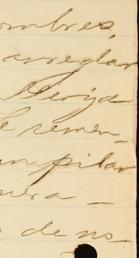 ombres,
arreglar
Merida
se remen-
un pilar
nera -
de no